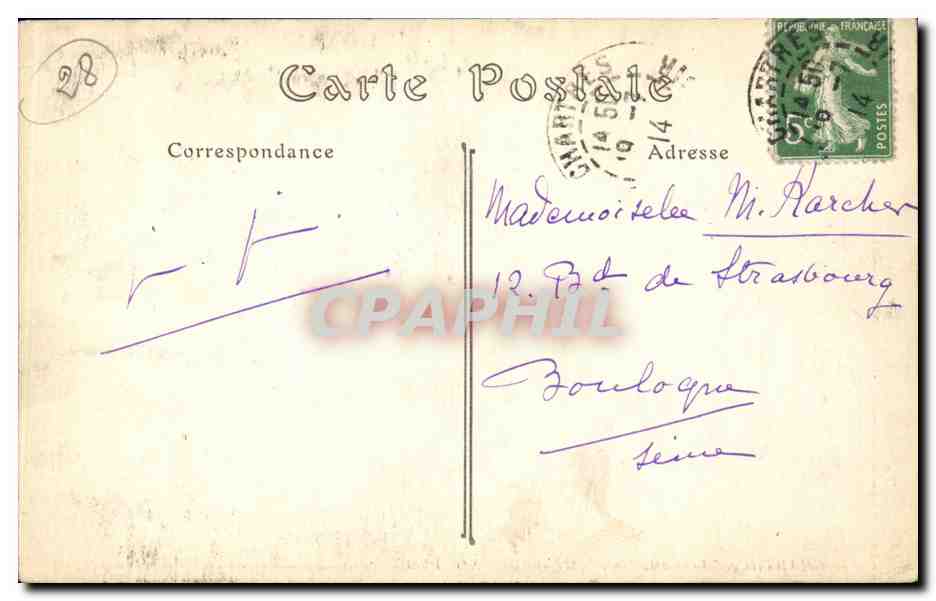 28
Carte Postale
Correspondance
Adresse
CHARTRES
14 50
9 - 7
14
REPUBLIQUE FRANÇAISE
5c
POSTES
CHARTRES
14 50
9 - 7
14
Mademoiselle M. Karcher
12. Bd de Strasbourg
Boulogne
Seine
CPAPHIL